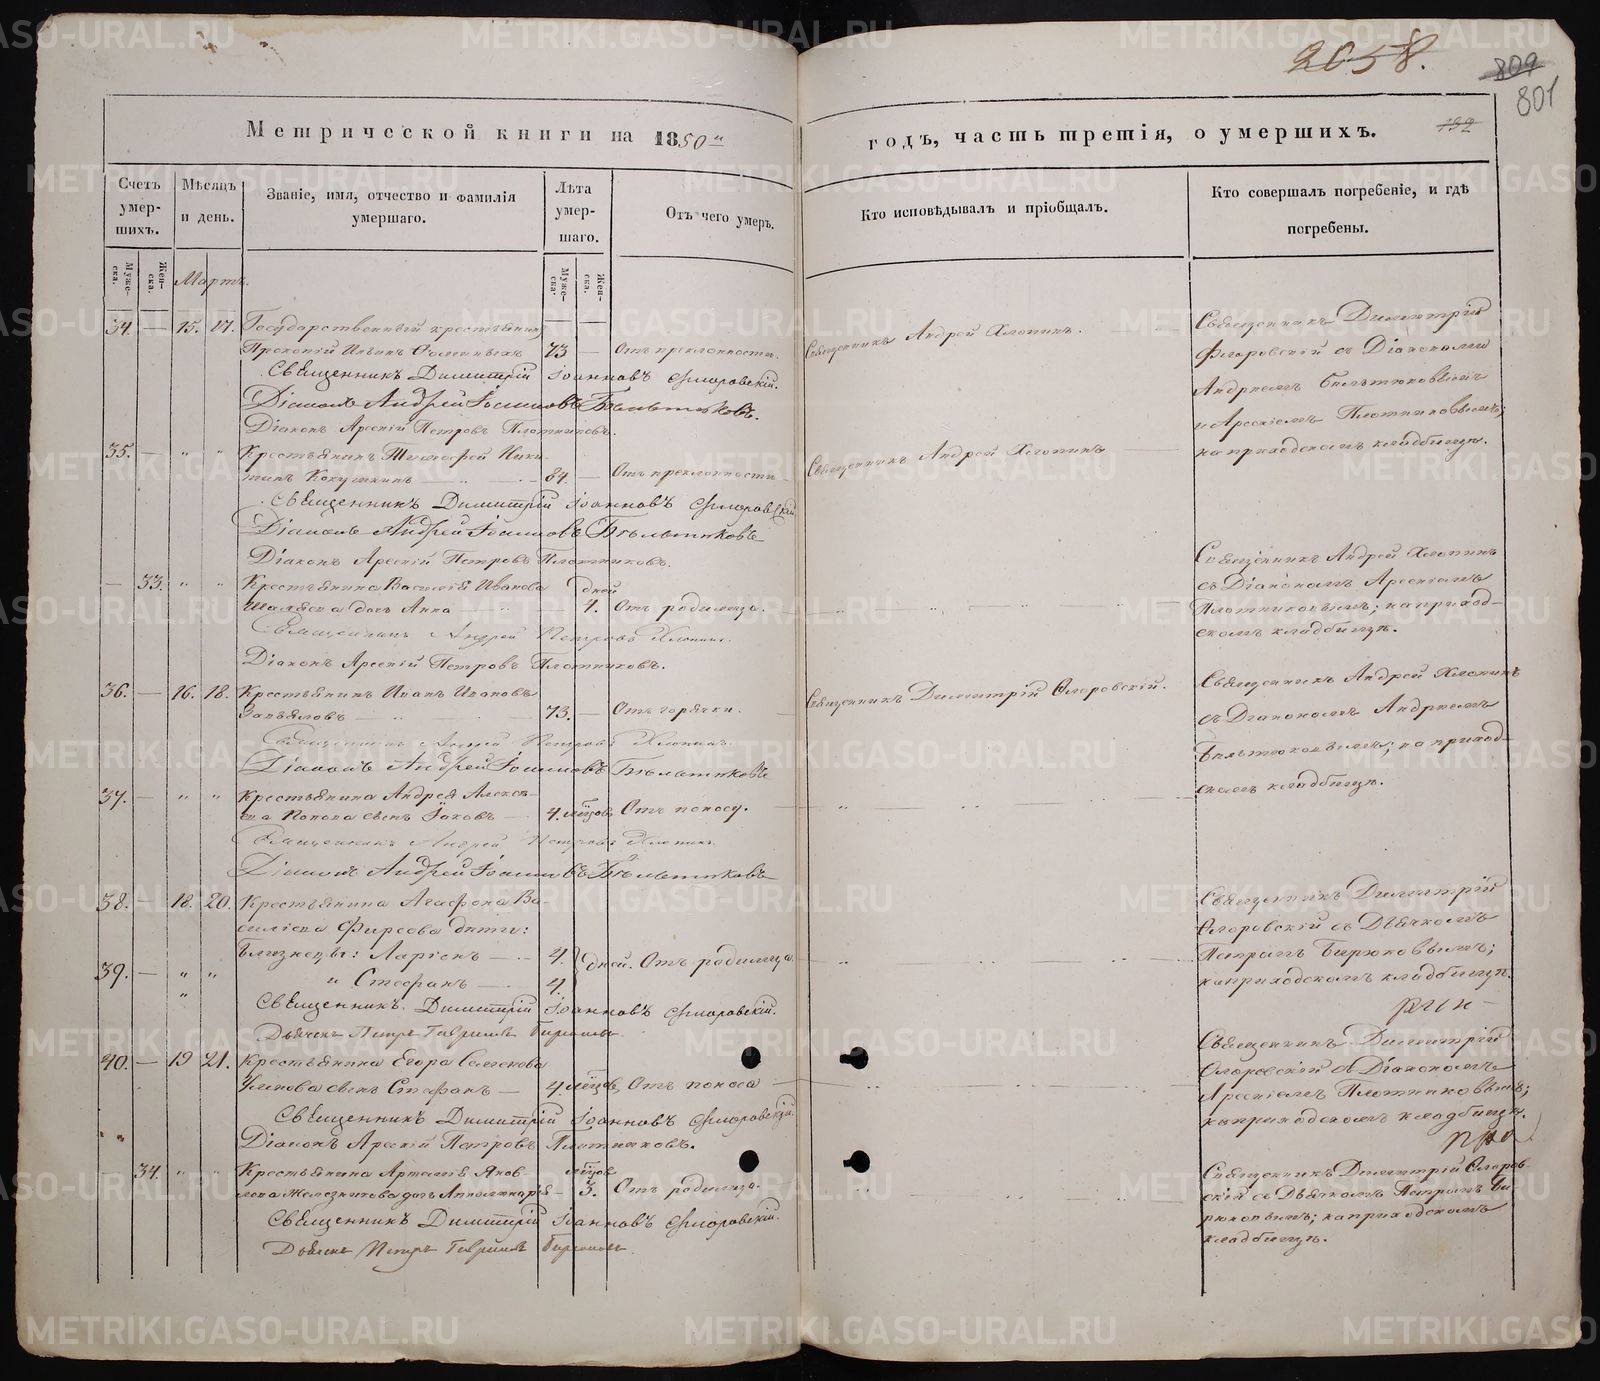 2658.
809
801
Метрической книги на 1850й
годъ, часть третія, о умершихъ.
192
Счетъ умер- шихъ.
Мѣсяцъ и день.
Званіе, имя, отчество и фамилія умершаго.
Лѣта умер- шаго.
Отъ чего умеръ.
Кто исповѣдывалъ и пріобщалъ.
Кто совершалъ погребеніе, и гдѣ погребены.
Муже- ска.
Жен- ска.
Мартъ.
Муже- ска.
Жен- ска.
34. — 15. 17. Государственный крестьянинъ
Прокопій Ильинъ 73 — Отъ преклонности.
Священникъ Андрей Хлопинъ.
Священникъ Димитрій
Флоровскій съ Діакономи
Андреемъ Бѣльтюковымъ
и Арсеніемъ Плотниковымъ;
на приходскомъ кладбищѣ.
Священникъ Димитрій Іоанновъ Флоровскій.
Діаконъ Андрей Іоанновъ Бѣльтюковъ.
Діаконъ Арсеній Петровъ Плотниковъ.
35. — " " Крестьянинъ Тимофей Ники-
тинъ Кокушкинъ — 84. — Отъ преклонности
Священникъ Андрей Хлопинъ
Священникъ Димитрій Іоанновъ Флоровскій
Діаконъ Андрей Іоанновъ Бѣльтюковъ
Діаконъ Арсеній Петровъ Плотниковъ.
— 33. " " Крестьянина Василія Иванова дней
дочь Анна — 4. Отъ родимца.
Священникъ Андрей Хлопинъ
съ Діакономъ Арсеніемъ
Плотниковымъ; на приход-
скомъ кладбищѣ.
Священникъ Андрей Петровъ Хлопинъ.
Діаконъ Арсеній Петровъ Плотниковъ.
36. — 16. 18. Крестьянинъ Иванъ Ивановъ
Завьяловъ — 73. — Отъ горячки.
Священникъ Димитрій Флоровскій.
Священникъ Андрей Хлопинъ
съ Діакономъ Андреемъ
Бѣльтюковымъ; на приход-
скомъ кладбищѣ.
Священникъ Андрей Петровъ Хлопинъ.
Діаконъ Андрей Іоанновъ Бѣльтюковъ
37. — " " Крестьянина Андрея Алексѣ-
ева Попова сынъ Іаковъ — 4. мѣсяцов. Отъ поносу.
Священникъ Андрей Петровъ Хлопинъ.
Діаконъ Андрей Іоанновъ Бѣльтюковъ
38. — 18. 20. Крестьянина Агафона Ва-
сильева Фирсова дѣти:
Близнецы: Ларіонъ — 4.
39. — " " и Стефанъ — 4. дней. Отъ родимца
Священникъ Димитрій
Флоровскій съ Дьячкомъ
Петромъ Бирюковымъ;
на приходскомъ кладбищѣ.
Священникъ Димитрій Іоанновъ Флоровскій.
Дьячекъ Петръ Гавриловъ Бирюковъ.
40. — 19 21. Крестьянина Егора Семенова
сынъ Стефанъ — 4. мѣсяцов. Отъ поноса
Священникъ Димитрій
Флоровскій съ Діакономъ
Арсеніемъ Плотниковымъ;
на приходскомъ кладбищѣ.
Священникъ Димитрій Іоанновъ Флоровскій.
Діаконъ Арсеній Петровъ Плотниковъ.
34. " " Крестьянина Артемія Яков-
лева Железникова дочь Апполинарія — 3. Отъ родимца.
Священникъ Димитрій Флоров-
скій съ Дьячкомъ Петромъ Би-
рюковымъ; на приходскомъ
кладбищѣ.
Священникъ Димитрій Іоанновъ Флоровскій.
Дьячекъ Петръ Гавриловъ Бирюковъ.
METRIKI.GASO-URAL.RU